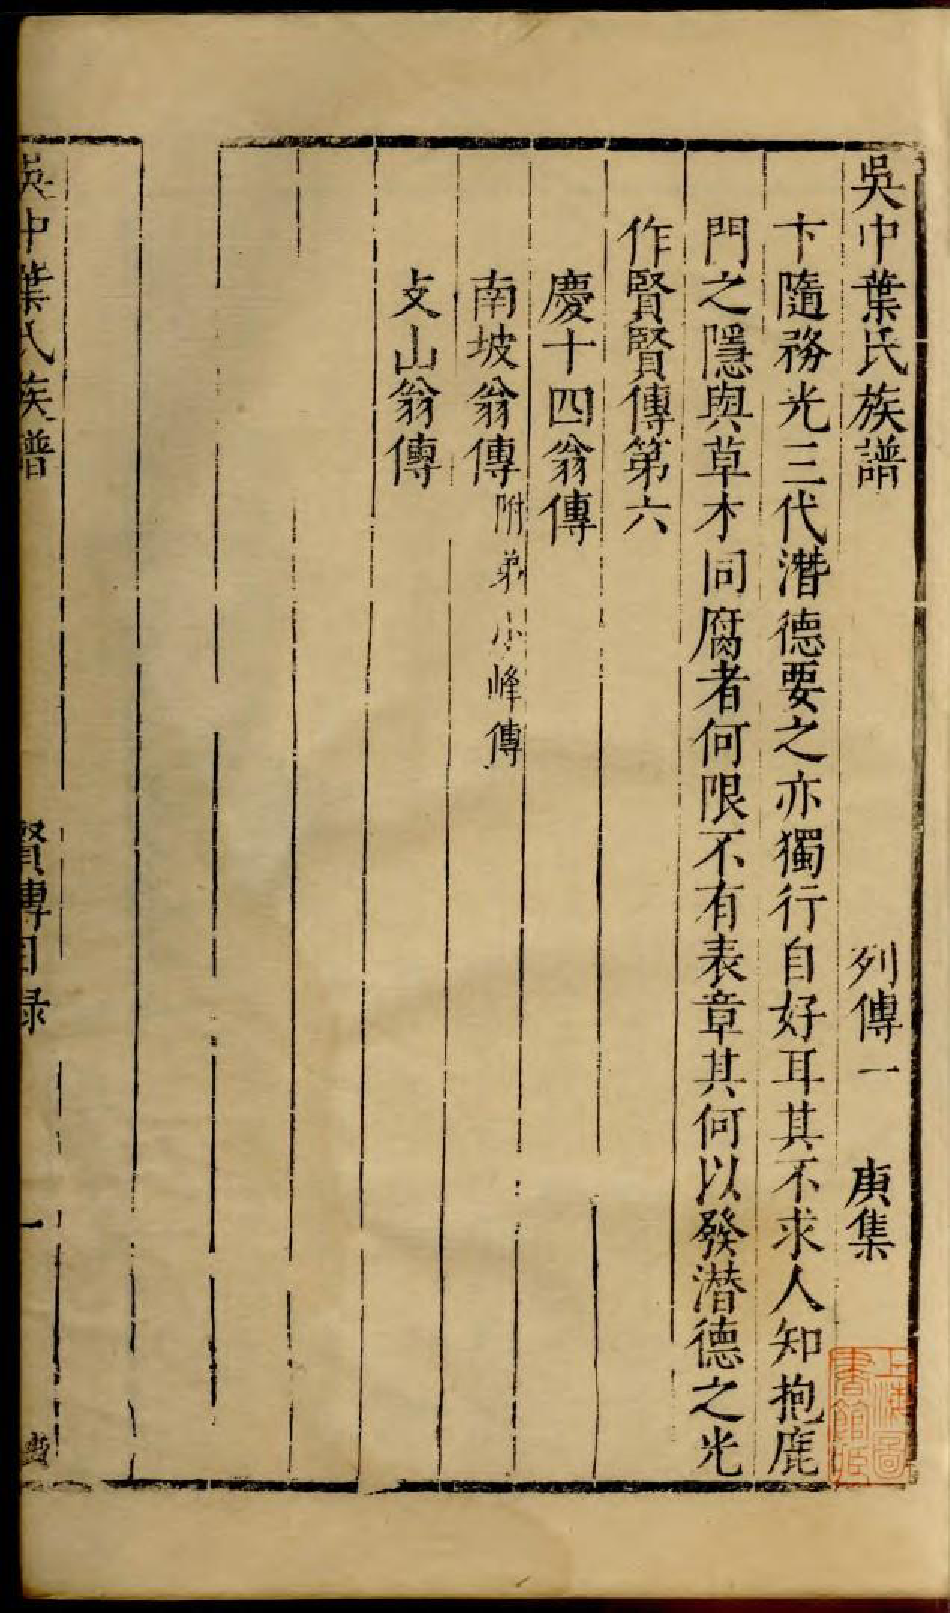 吳中葉氏族譜 列傳一 庚集
卞隨務光三代潛德要之亦獨行自好耳其不求人知抱鹿
門之隱與草木同腐者何限不有表章其何以發潜德之光
作賢賢傳第六
慶十四翁傳
南坡翁傳附弟小峰傳
攴山翁傳
吳中葉氏族譜 賢傳目錄 一
上海圖書館藏